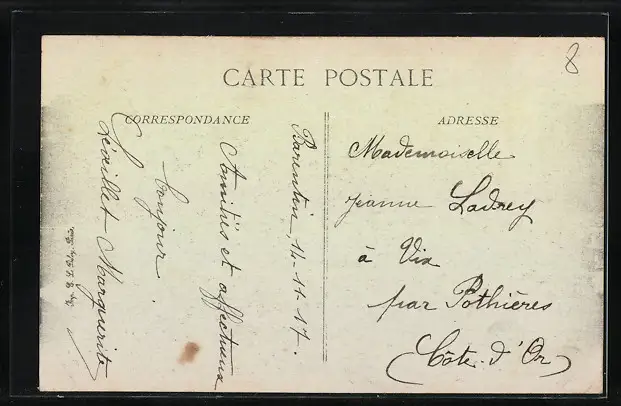 8
CARTE POSTALE
CORRESPONDANCE
ADRESSE
Barentin 14-11-17.
Amitiés et affectueux
bonjour.
Léveillet Marguerite
Mademoiselle
Jeanne Ladrey
à Vix
par Pothières
(Côte-d'Or)